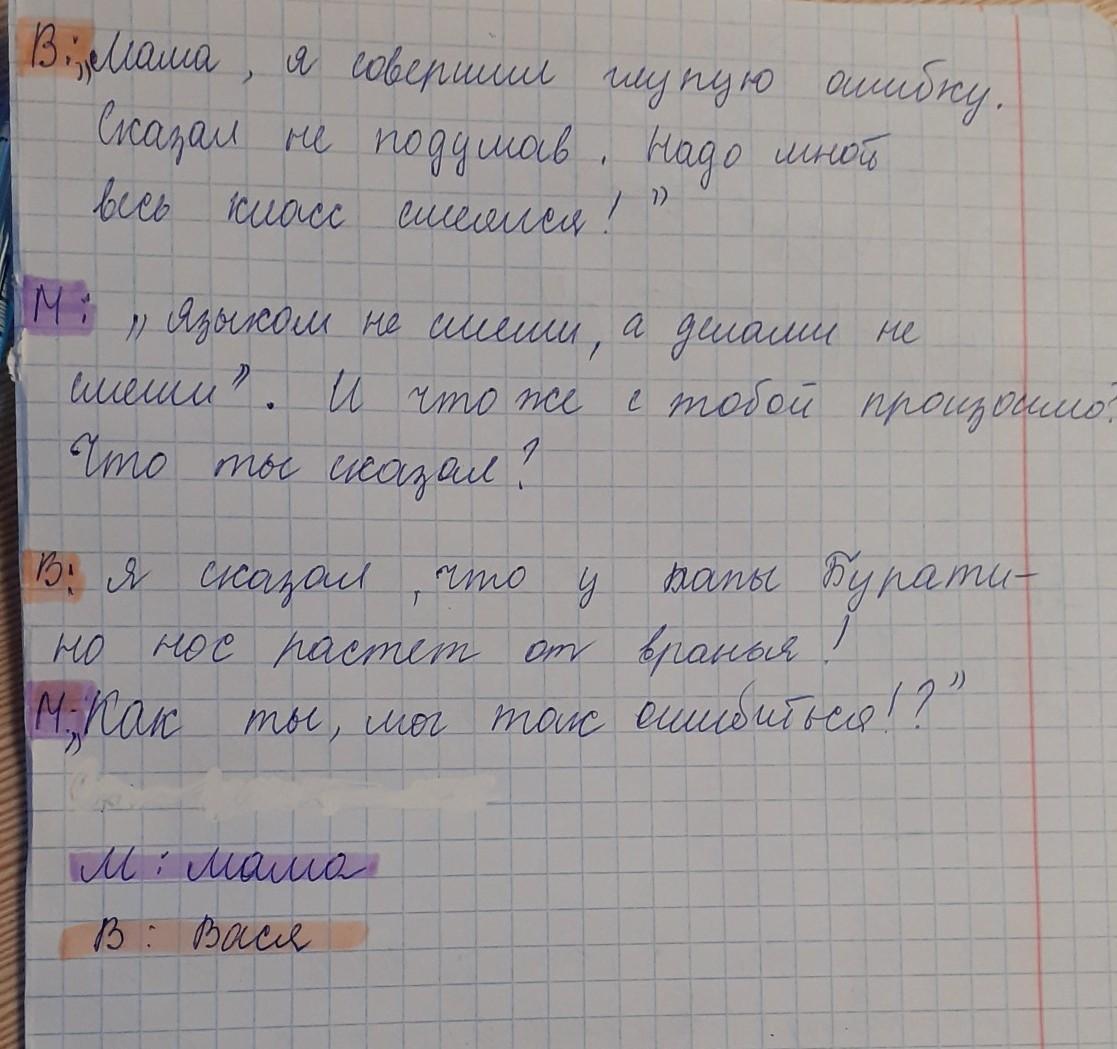 В: „Мама, я совершил глупую ошибку.
Сказал не подумав. Надо мной
весь класс смеялся!”
М: „Языком не спеши, а делами не
смеши”. И что же с тобой произошло?
Что ты сказал?
В: Я сказал, что у папы Бурати-
но нос растет от вранья!
М: „Как ты, мог так ошибиться!?”
М: мама
В: Вася